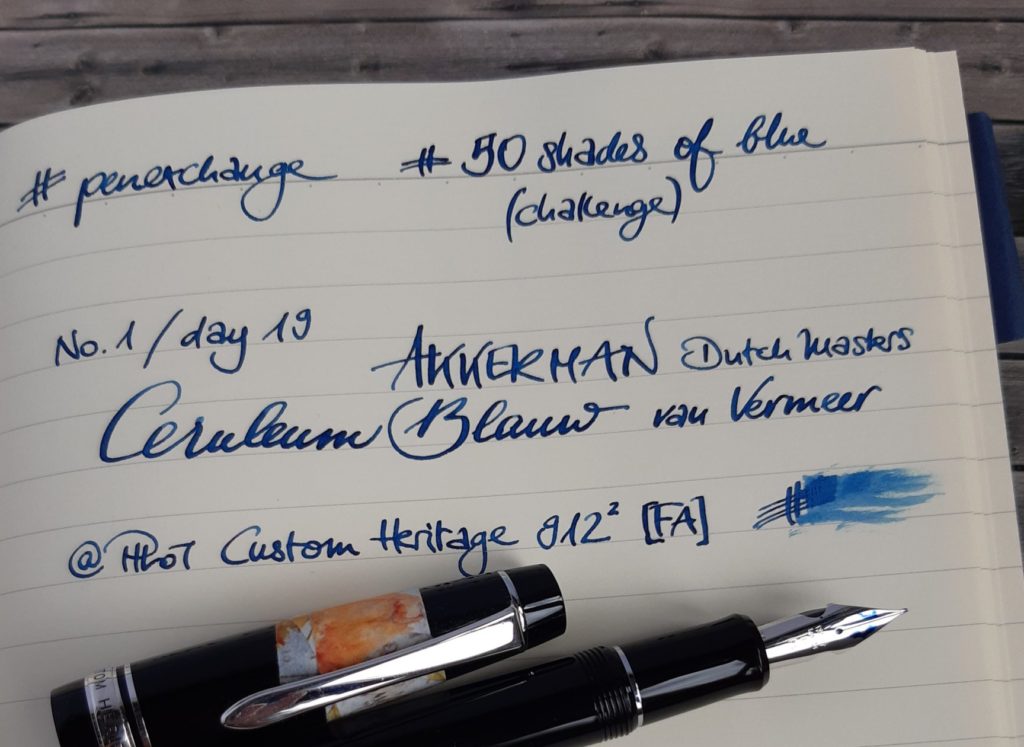 # penexchange # 50 shades of blue
(challenge)
No. 1 / day 19
AKKERMAN Dutch Masters
Ceruleum Blauw van Vermeer
@ PILOT Custom Heritage 912² [FA]